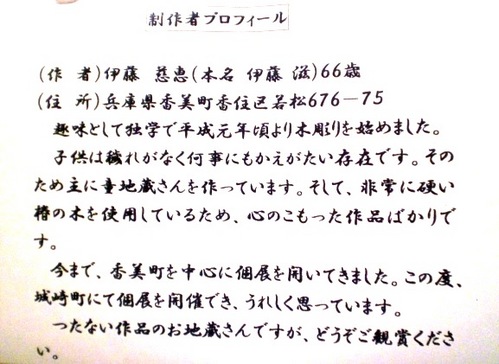 制作者プロフィール
(作 者)伊藤 慈恵(本名 伊藤 滋)66歳
(住 所)兵庫県香美町香住区若松676-75
趣味として独学で平成元年頃より木彫りを始めました。
子供は穢れがなく何事にもかえがたい存在です。その
ため主に童地蔵さんを作っています。そして、非常に硬い
椿の木を使用しているため、心のこもった作品ばかりで
す。
今まで、香美町を中心に個展を開いてきました。この度、
城崎町にて個展を開催でき、うれしく思っています。
つたない作品のお地蔵さんですが、どうぞご観賞くださ
い。